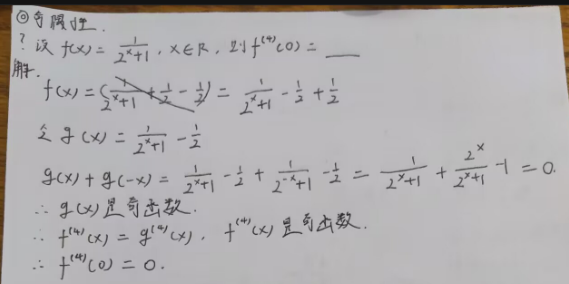 ◎奇偶性.
? 设 f(x) = 1/(2^x+1), x∈R, 则 f^(4)(0) = ___
解.
f(x) = (1/(2^x+1) + 1/2 - 1/2) = 1/(2^x+1) - 1/2 + 1/2
令 g(x) = 1/(2^x+1) - 1/2
g(x) + g(-x) = 1/(2^x+1) - 1/2 + 1/(2^-x+1) - 1/2 = 1/(2^x+1) + 2^x/(2^x+1) - 1 = 0.
∴ g(x) 是奇函数.
∴ f^(4)(x) = g^(4)(x), f^(4)(x) 是奇函数.
∴ f^(4)(0) = 0.